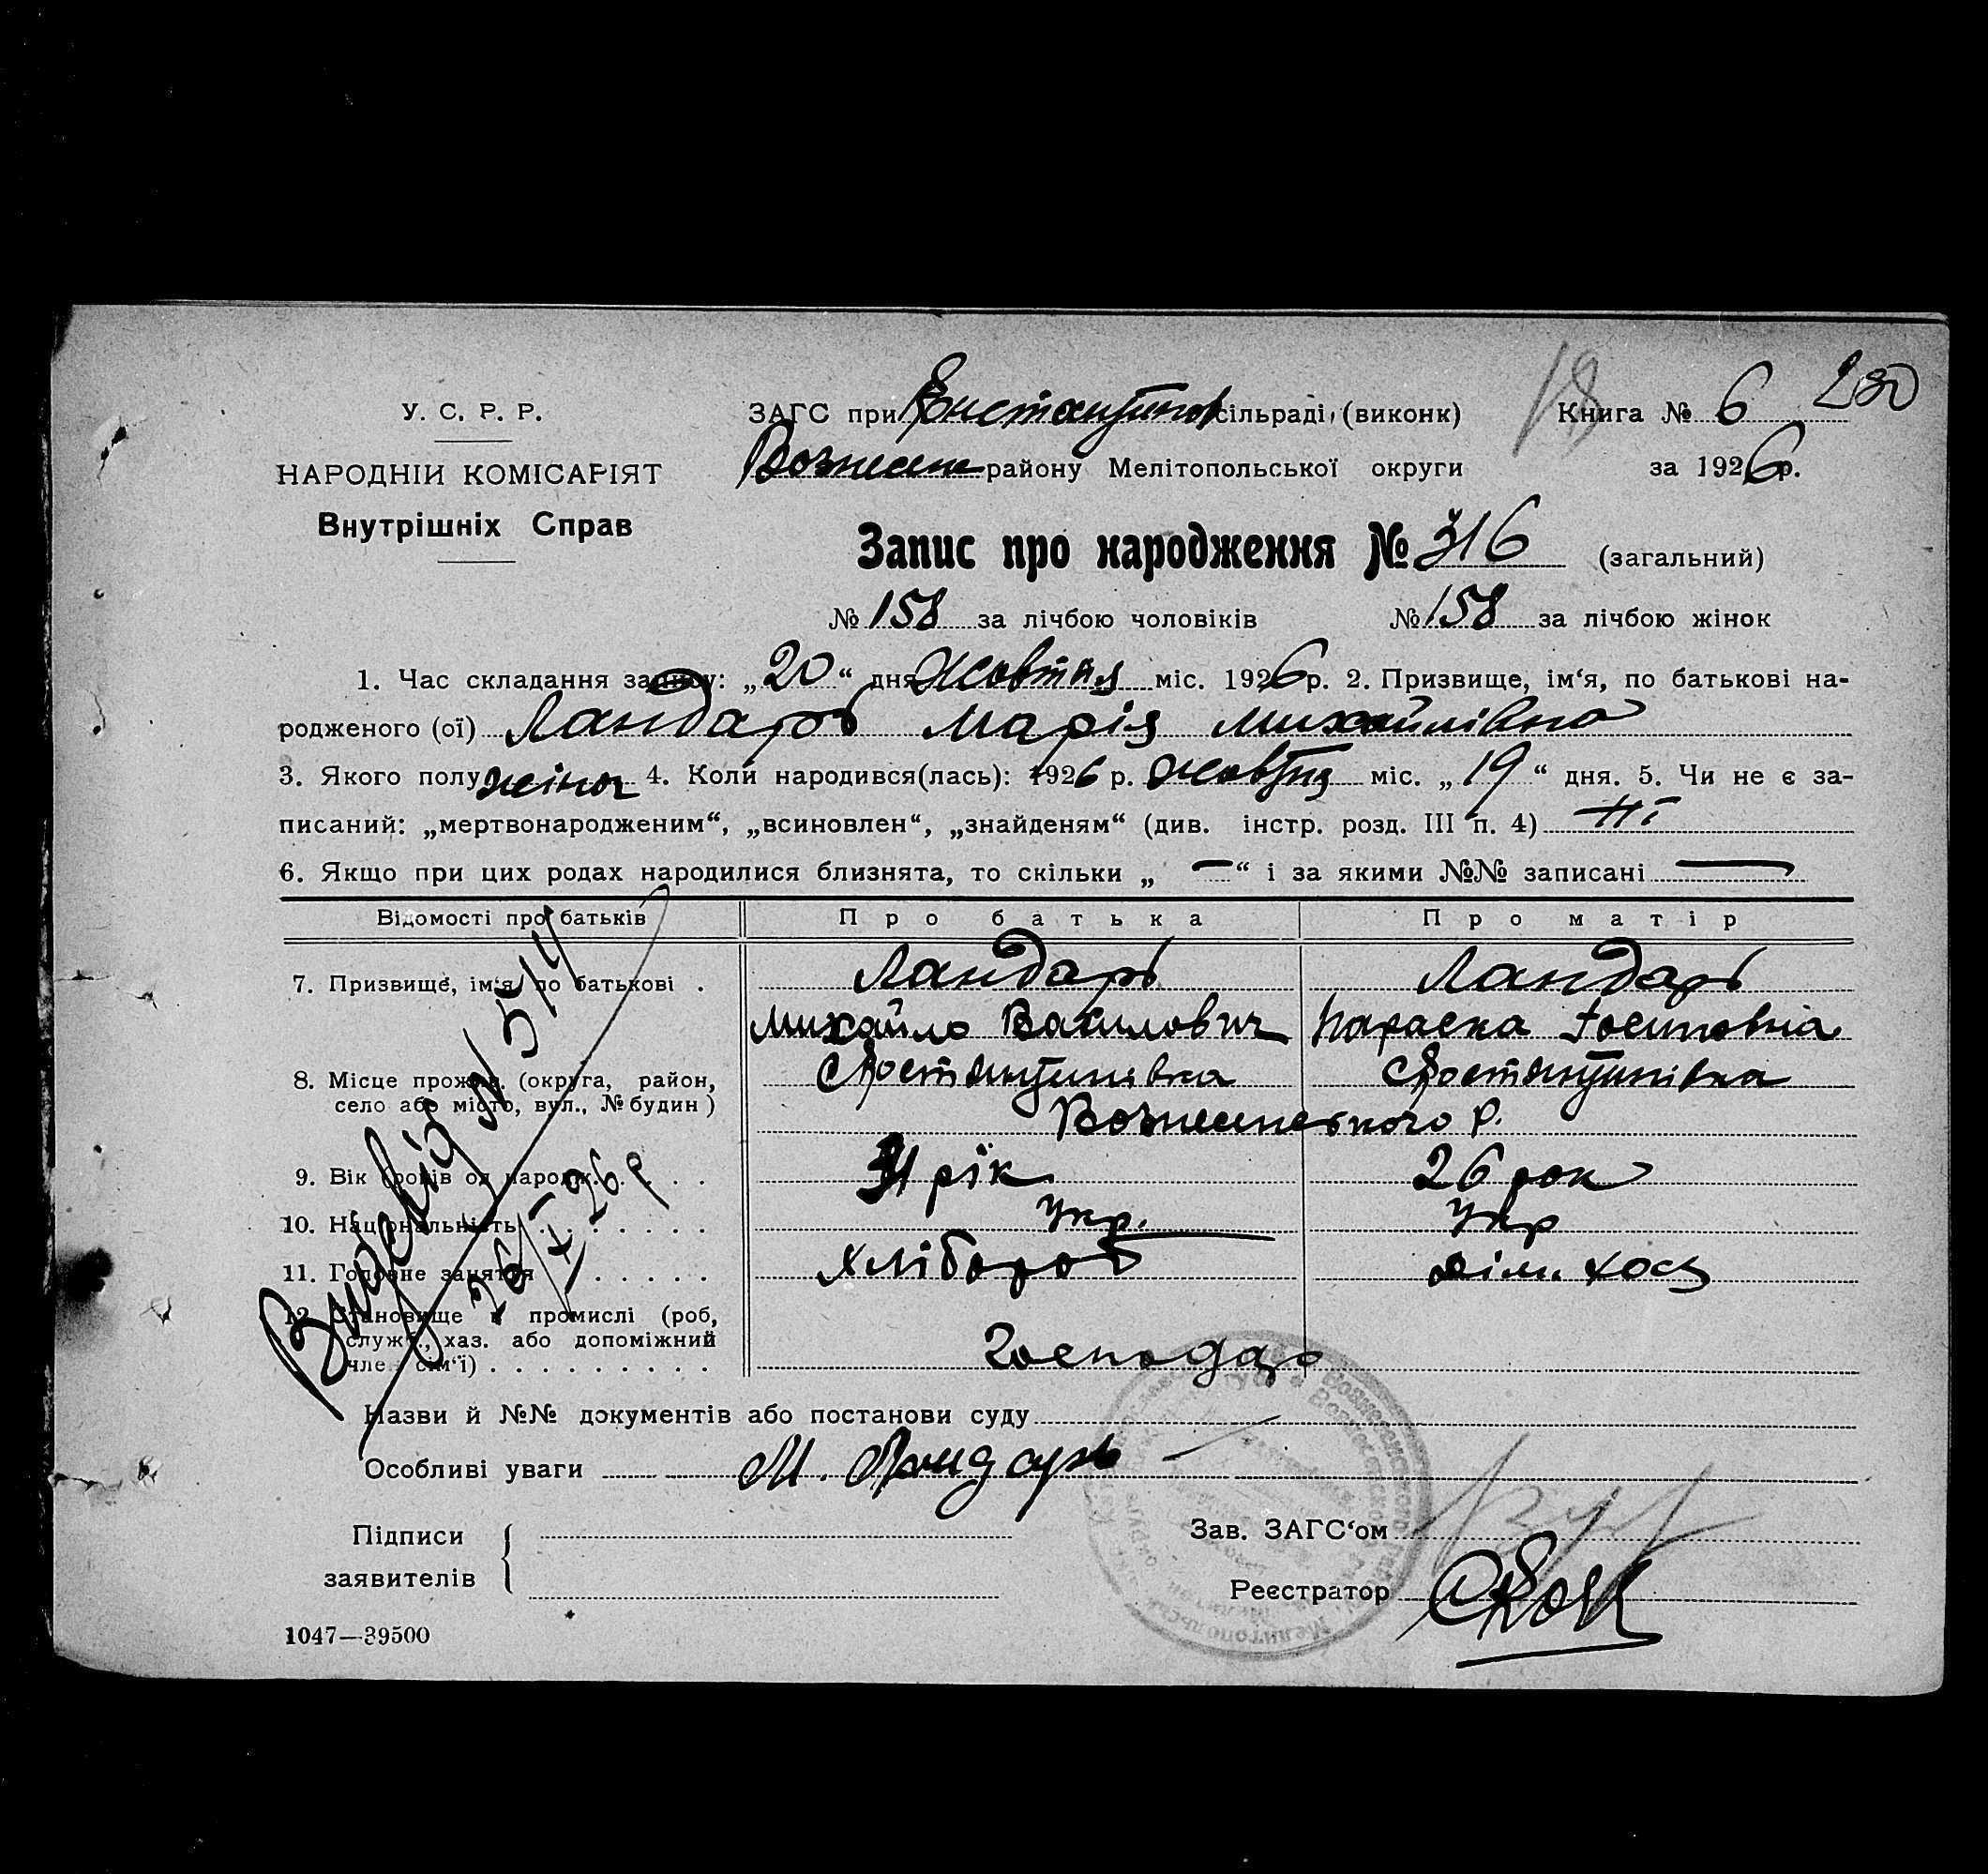 280
18
У. С. Р. Р.
НАРОДНІЙ КОМІСАРІЯТ
Внутрішніх Справ
ЗАГС при Констянтинов сільраді, (виконк)
Книга № 6
Вознесен району Мелітопольської округи
за 1926 р.
Запис про народження № 316 (загальний)
№ 158 за лічбою чоловіків № 158 за лічбою жінок
1. Час складання запису: „20“ дня Жовтня міс. 1926 р. 2. Призвище, ім‘я, по батькові на-
родженого (ої) Ландарь Марія Михайлівна
3. Якого полу жіноч 4. Коли народився(лась): 1926 р. жовтня міс. „19“ дня. 5. Чи не є за-
писаний: „мертвонародженим“, „всиновлен“, „знайденям“ (див. інстр. розд. III п. 4) Ні
6. Якщо при цих родах народилися близнята, то скільки „ — “ і за якими №№ записані —
Відомості про батьків Про батька Про матір
7. Призвище, ім‘я, по батькові . Ландарь Ландарь
Михайло Василович Параска Йосиповна
8. Місце прожив. (округа, район, Костянтинівка Костянтинівка
село або місто, вул., № будин) Вознесенського р.
9. Вік (років од народж. . . . . 31 рік 26 рок
10. Національність . . . . . . . Укр. Укр
11. Головне заняття . . . . . . Хлібороб дім. хоз
12. Становище в промислі (роб,
служб., хаз. або допоміжний
член сім‘ї) . . . . . . . . . Господар
26/X 26 р
Назви й №№ документів або постанови суду
Особливі уваги М. Ландарь
Підписи
заявителів
Зав. ЗАГС‘ом
Реєстратор
1047—39500